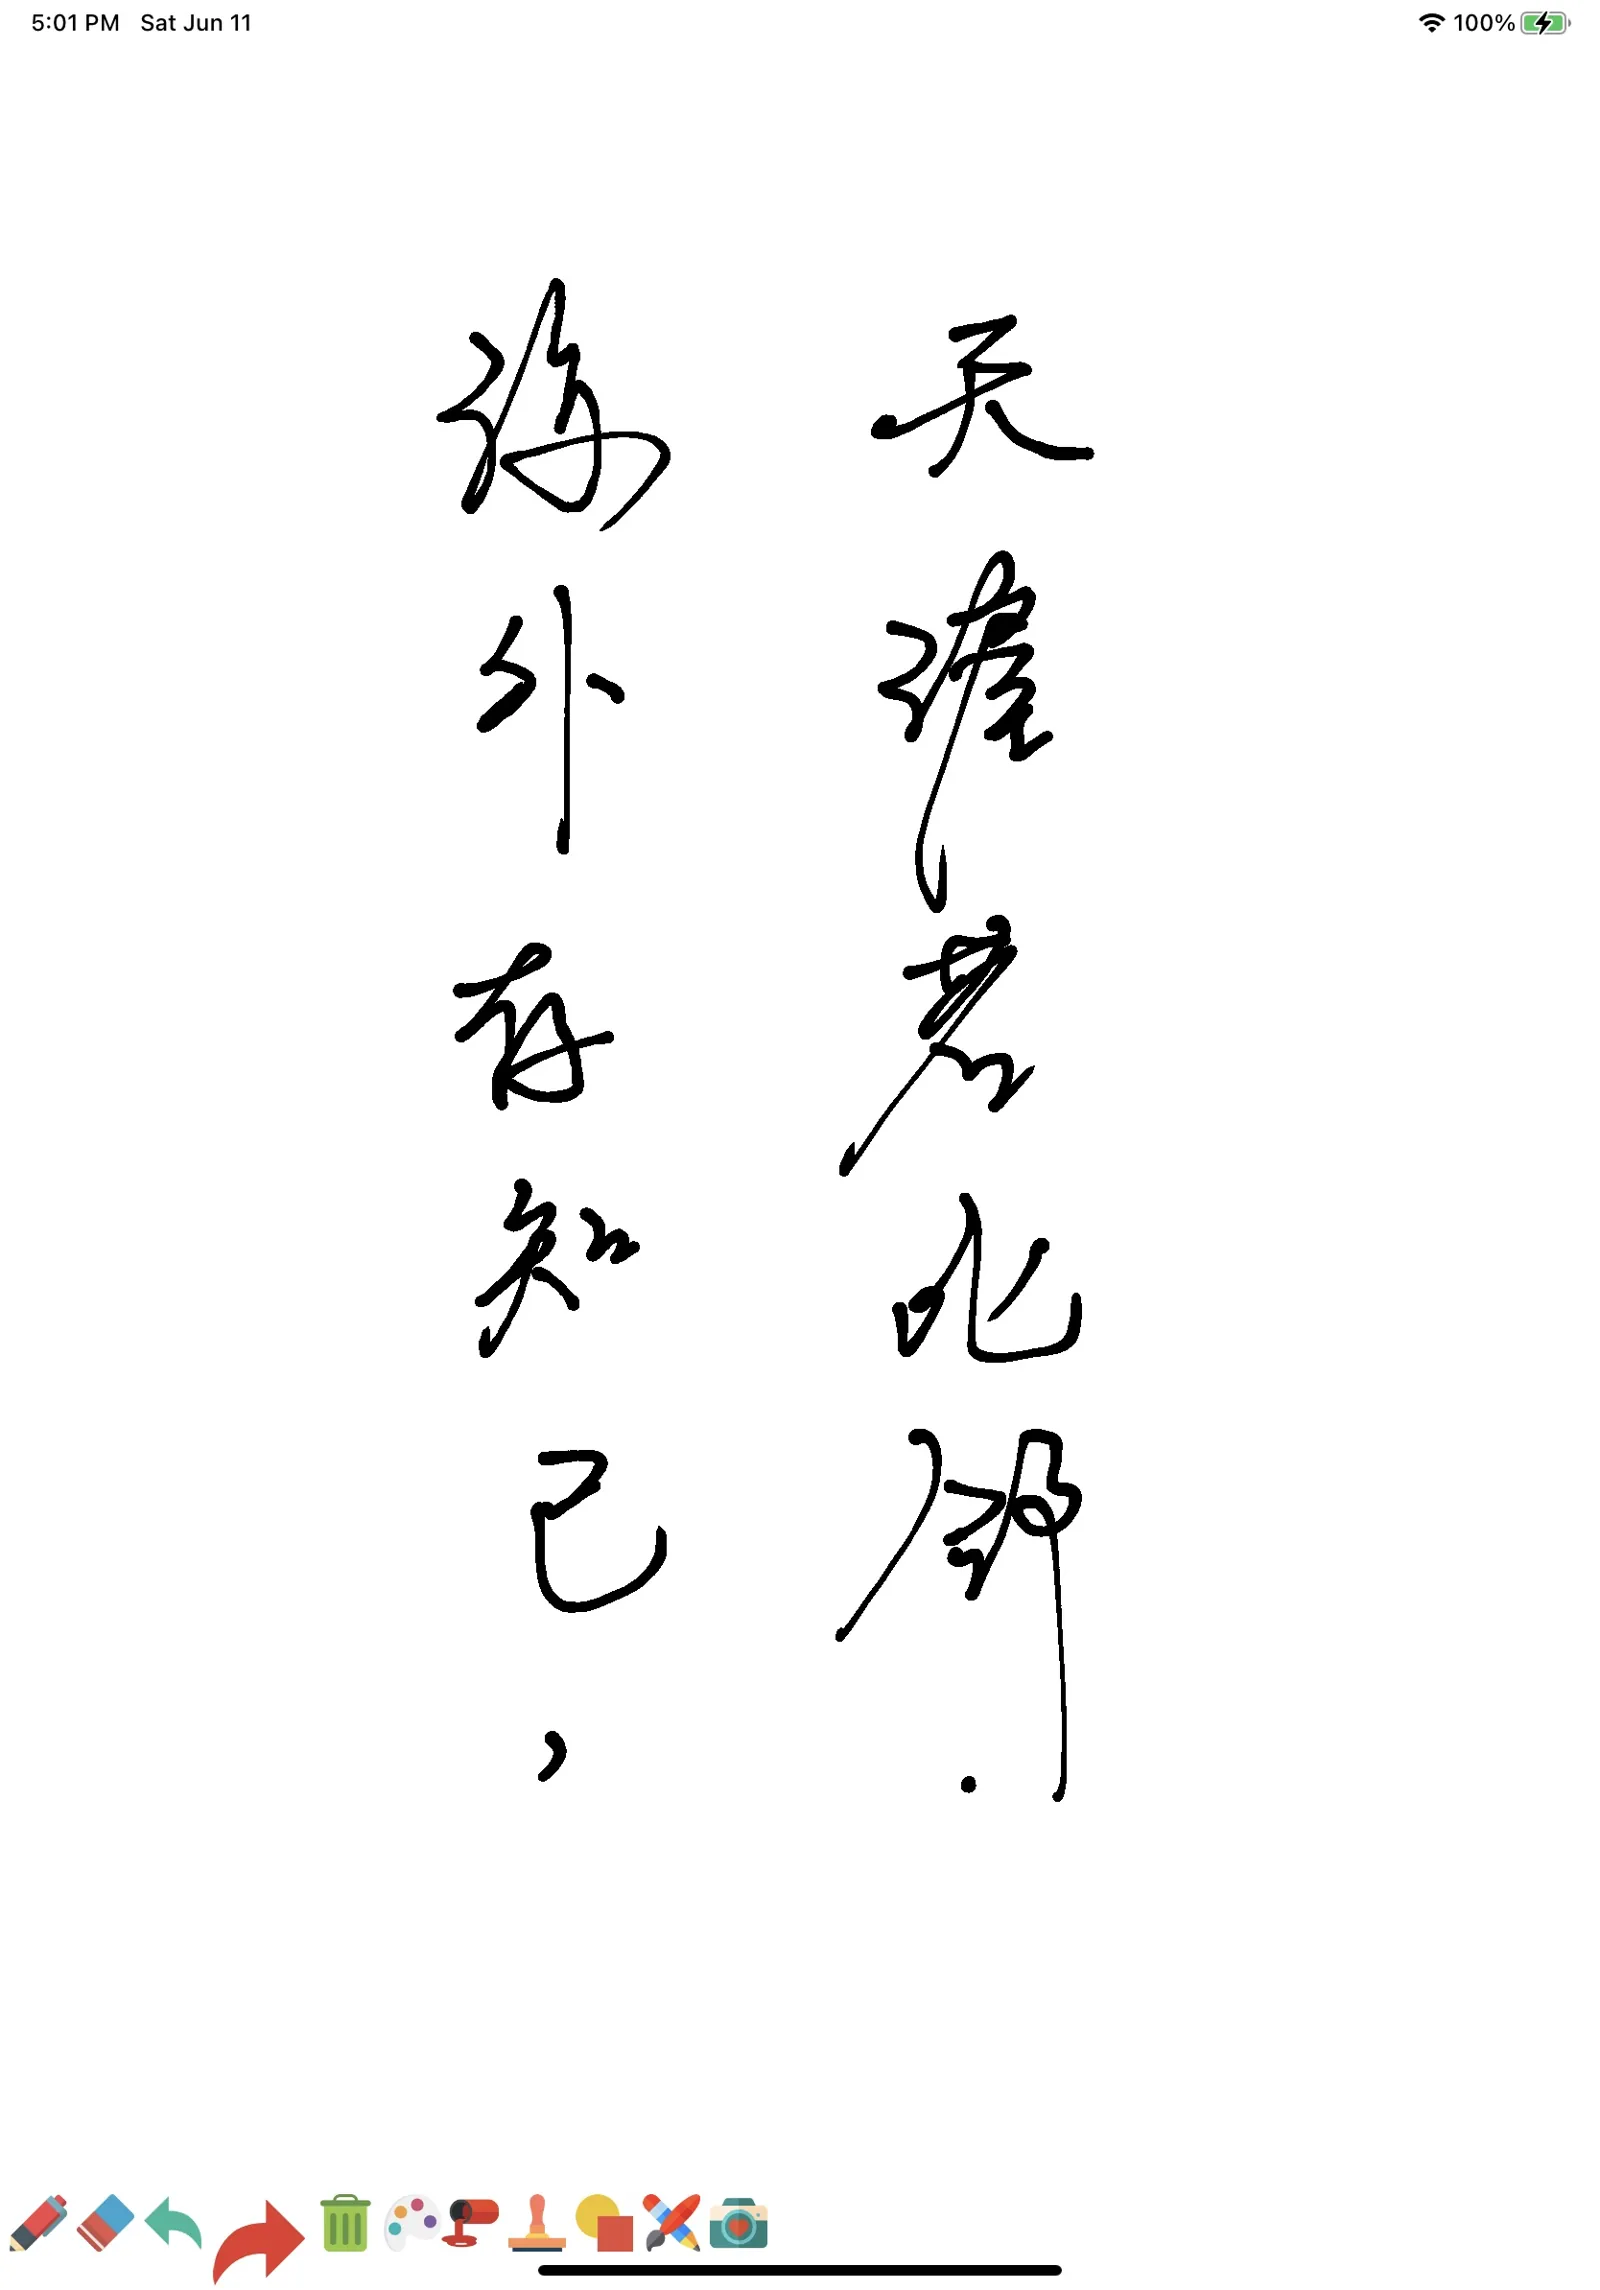 5:01 PM Sat Jun 11 100%
海外存知己，
天涯若比邻.